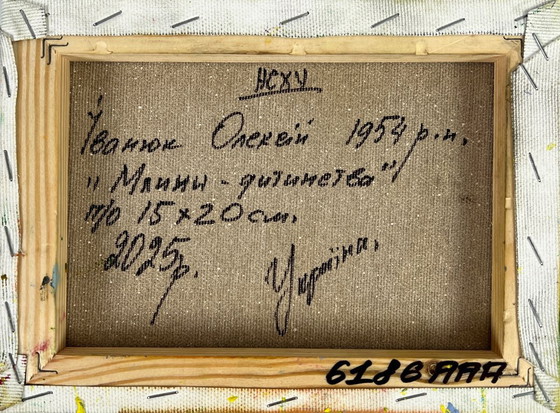 НСХУ
Іванюк Олексій 1954 р.н.
"Млини - дитинства"
п/о 15х20см.
2025р.
Україна.
618ВААА